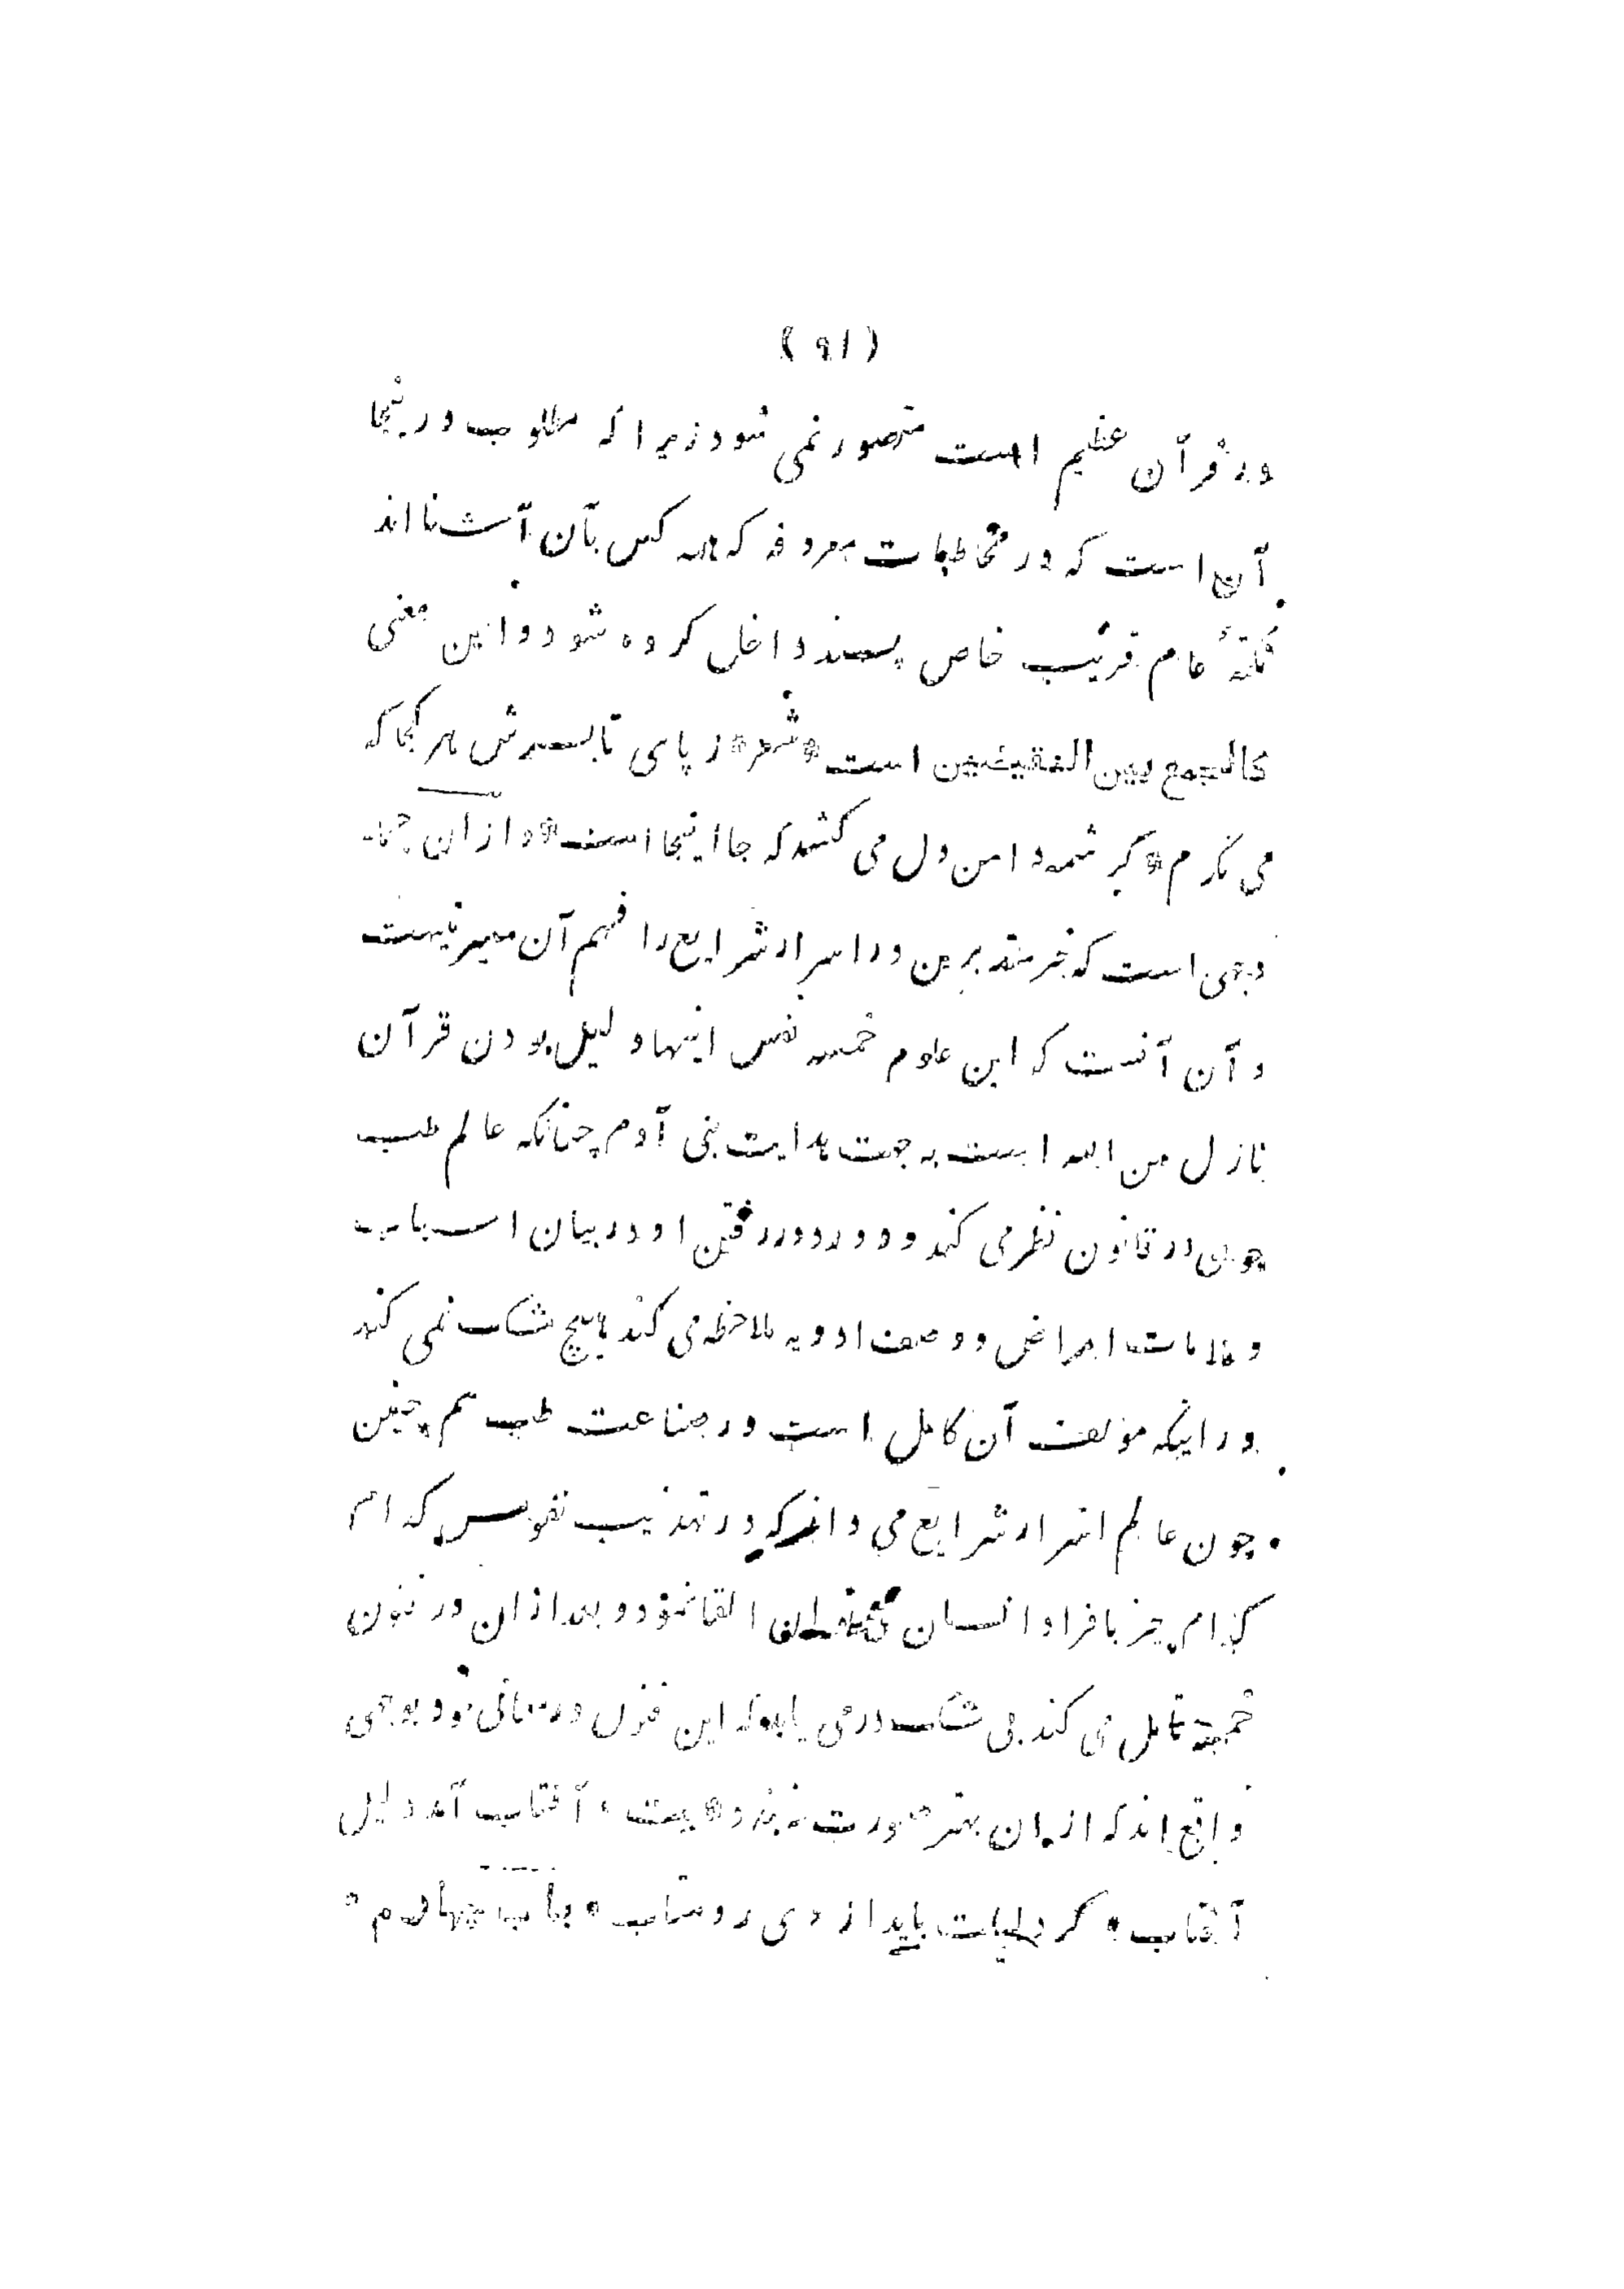 ( ۹۱ )
در قرآن عظیم است متصور نمی شود زیرا که مطلوب درینجا
آن است که در مخاطبات معروفه که همه کس بآن آشنا اند
نکتهٔ عام قریب خاص پسند داخل کرده شود و این معنی
کالجمع بین النقیضین است * شعر * ز پای تا بسرش هر کجا که
می نگرم * کرشمه دامن دل می کشد که جا اینجا است * و ازان جمله
وجهی است که جز متدبرین در اسرار شرایع را فهم آن میسر نیست
و آن آنست که این علوم خمسه نفس اینها دلیل بودن قرآن
نازل من الله است به جهت هدایت بنی آدم چنانکه عالم طب
چون در قانون نظر می کند و دور دور رفتن او در بیان اسباب
و علامات امراض و وصف ادویه ملاحظه می کند هیچ شک نمی کند
در اینکه مؤلف آن کامل است در صناعت طب هم چنین
چون عالم اسرار شرایع می داند که در تهذیب نفوس کدام
کدام چیز بافراد انسان می توان القا نمود و بعد ازان در فنون
خمسه تامل می کند بی شک در می یابد که این فنون در معانی خود بوجهی
واقع اند که ازان بهتر صورت نه بندد * بیت * آفتاب آمد دلیل
آفتاب * گر دلیلت باید از وی رو متاب * باب چهارم *